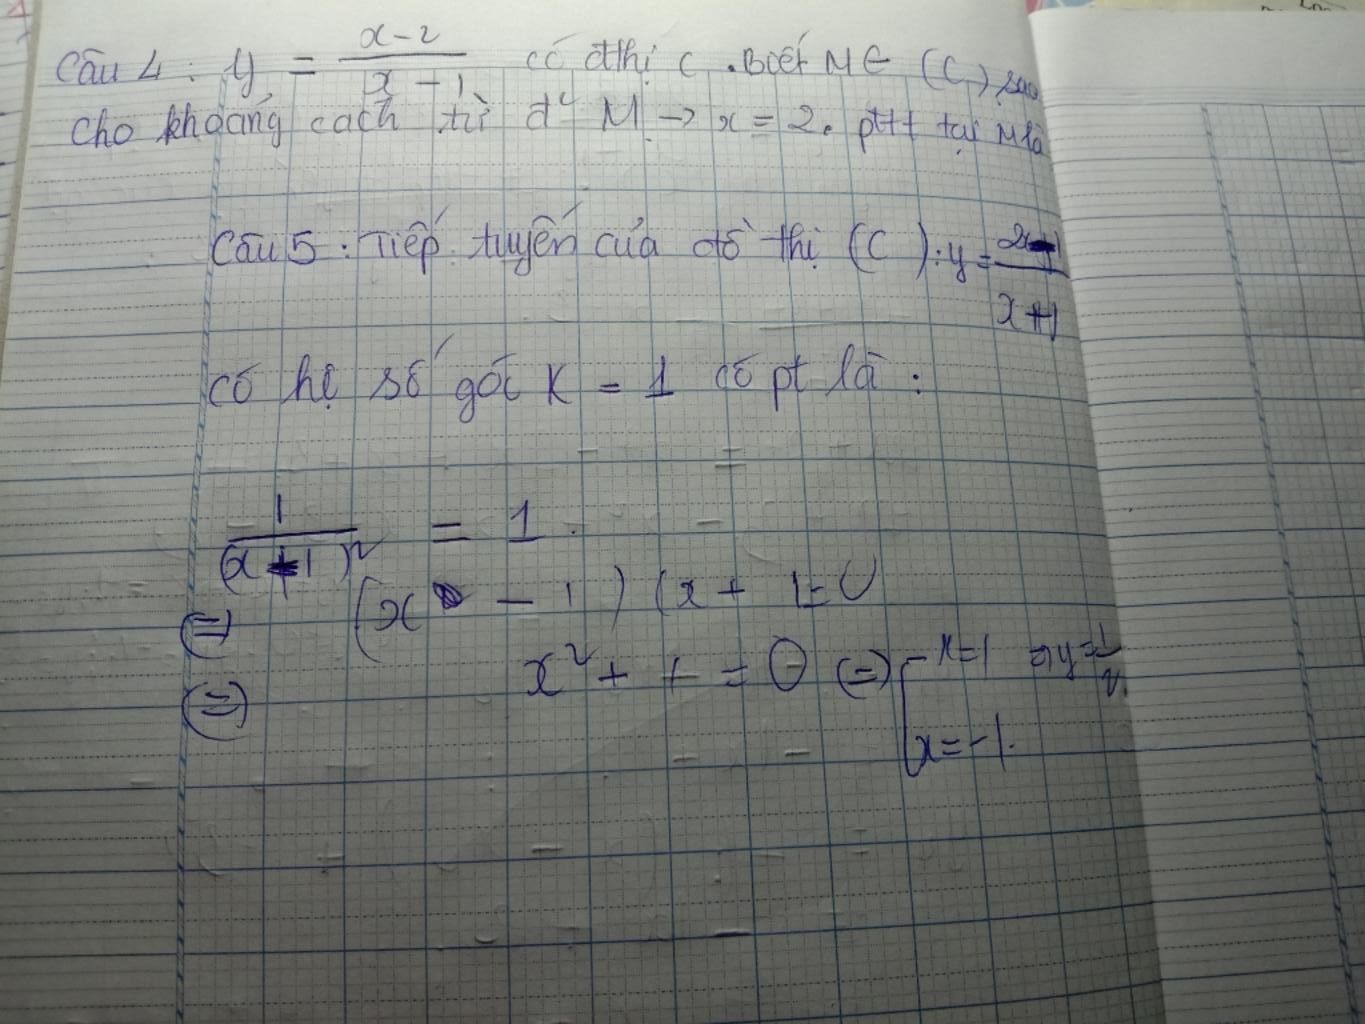 Câu 4 : y = x-2 / x-1 có đthị C . Biết M ∈ (C) sao
cho khoảng cách từ đ² M → x = 2. pttt tại M là
Câu 5 : Tiếp tuyến của đồ thị (C) : y = / x+1
có hệ số góc K = 1 có pt là :
1 / (x+1)² = 1 .
(=) (x - 1) (x + 1 = 0
(=) x² + 1 = 0 (=) [ x=1 => y = 1/2
x = -1.